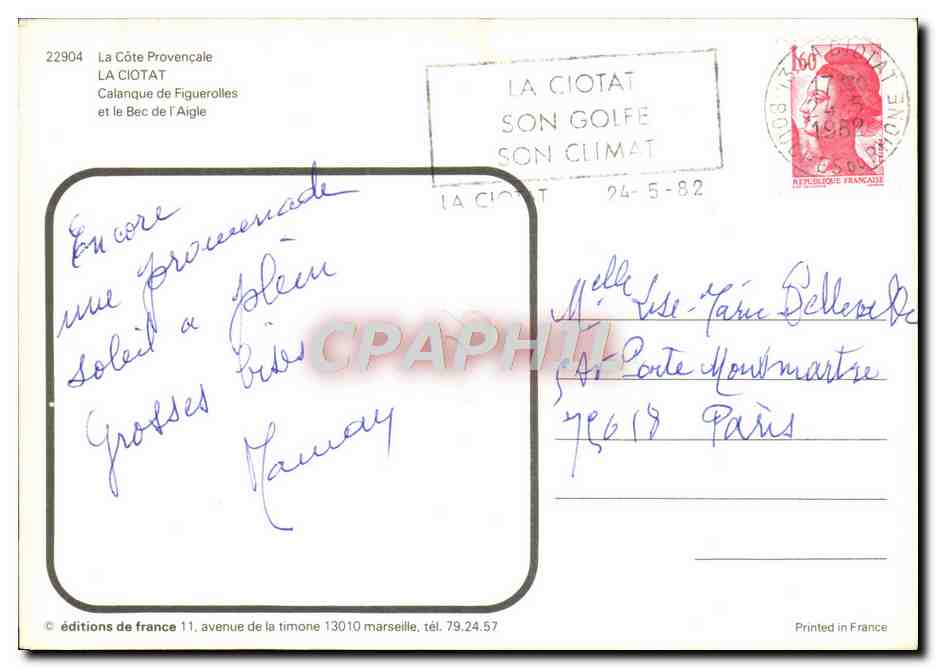 22904 La Côte Provençale
LA CIOTAT
Calanque de Figuerolles
et le Bec de l'Aigle
LA CIOTAT
SON GOLFE
SON CLIMAT
LA CIOTAT 24-5-82
1,60
REPUBLIQUE FRANÇAISE
13 LA CIOTAT
24-5
1982
BOUCHES DU RHONE
Encore
une promenade
soleil a plein
Grosses bises
Mamay
Melle Lise-Marie
5 Av Porte Montmartre
75618 Paris
CPAPHIL
© éditions de france 11, avenue de la timone 13010 marseille, tél. 79.24.57
Printed in France